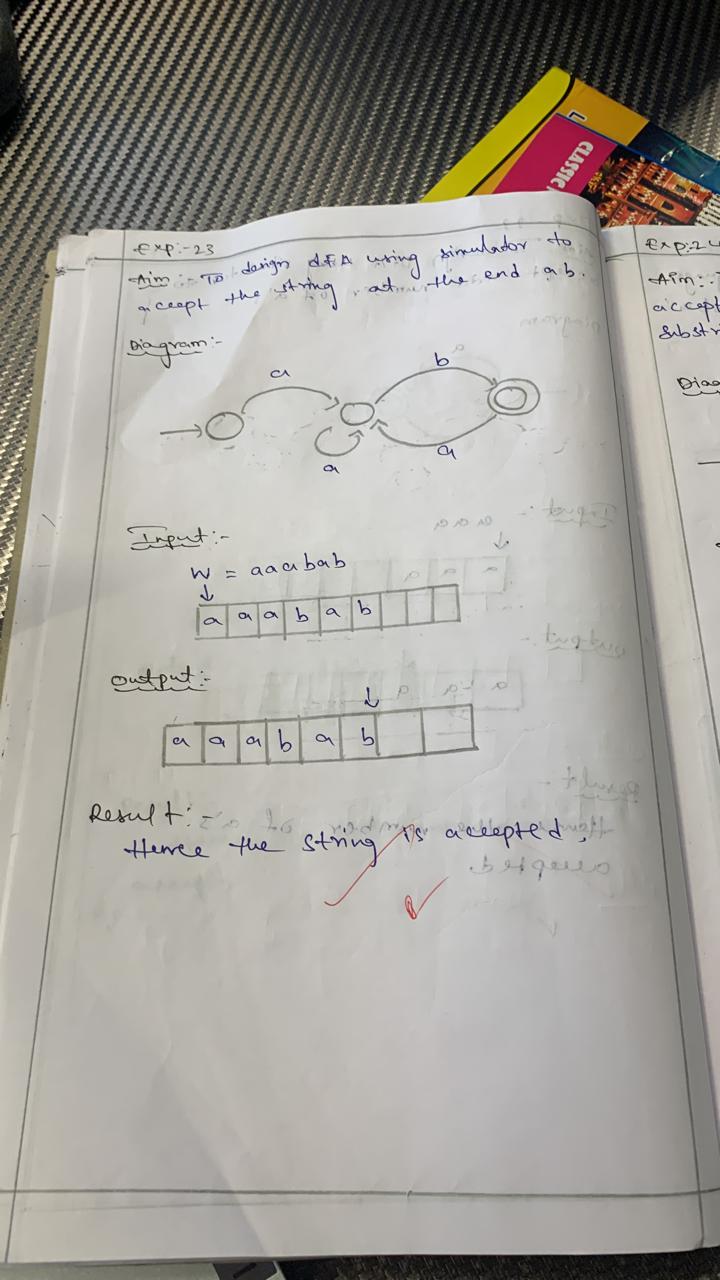 Exp:-23
Aim :- To design dFA using simulator to
accept the string at the end ab.
Diagram:-
a
b
a
a
Input:-
W = aaabab
a a a b a b
Output:-
a a a b a b
Result:-
Hence the string is accepted.
Exp:2
Aim:-
accept
substr
Diag
CLASSIC